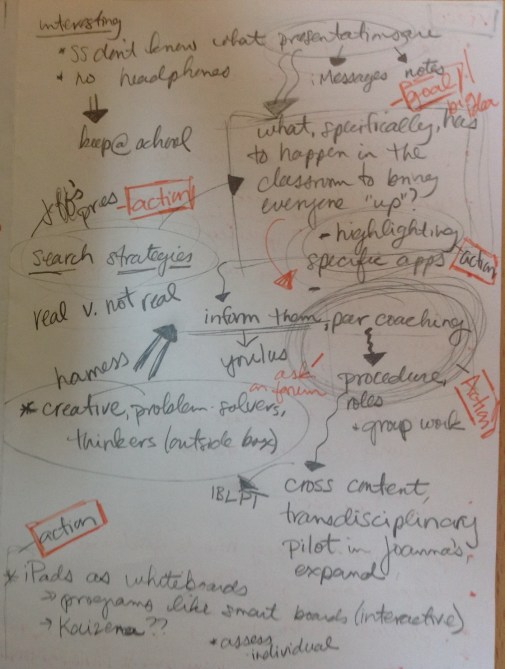 interesting
* SS don't know what presentations are
* no headphones
Messages
notes
goal!!
keep @ school
what, specifically, has
to happen in the
classroom to bring
everyone "up"?
Jeff's
pres
action
- highlighting
specific apps
action
search strategies
real v. not real
inform them, peer coaching
harness
ask
on forum
procedure,
roles
+ group work
Action
* creative, problem-solvers,
thinkers (outside box)
cross content,
transdisciplinary
pilot in Joanna's,
expand
action
* iPads as whiteboards
→ programs like smart boards (interactive)
→ Kaizena??
* assess
individual